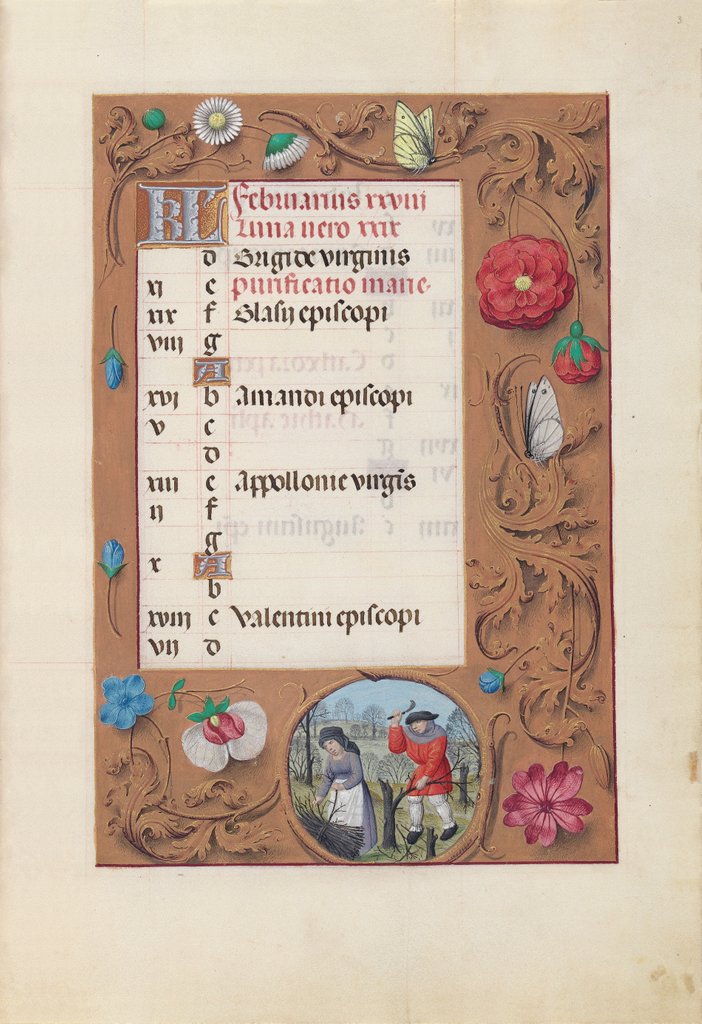 KL Februarius xxviii
Luna vero xxix
d Brigide virginis
xi e purificatio marie·
xix f Blasij episcopi
viii g
A
xvi b Amandi episcopi
v c
d
xiii e Appollonie virgĩs
ii f
g
x A
b
xviii c Valentini episcopi
vii d
3